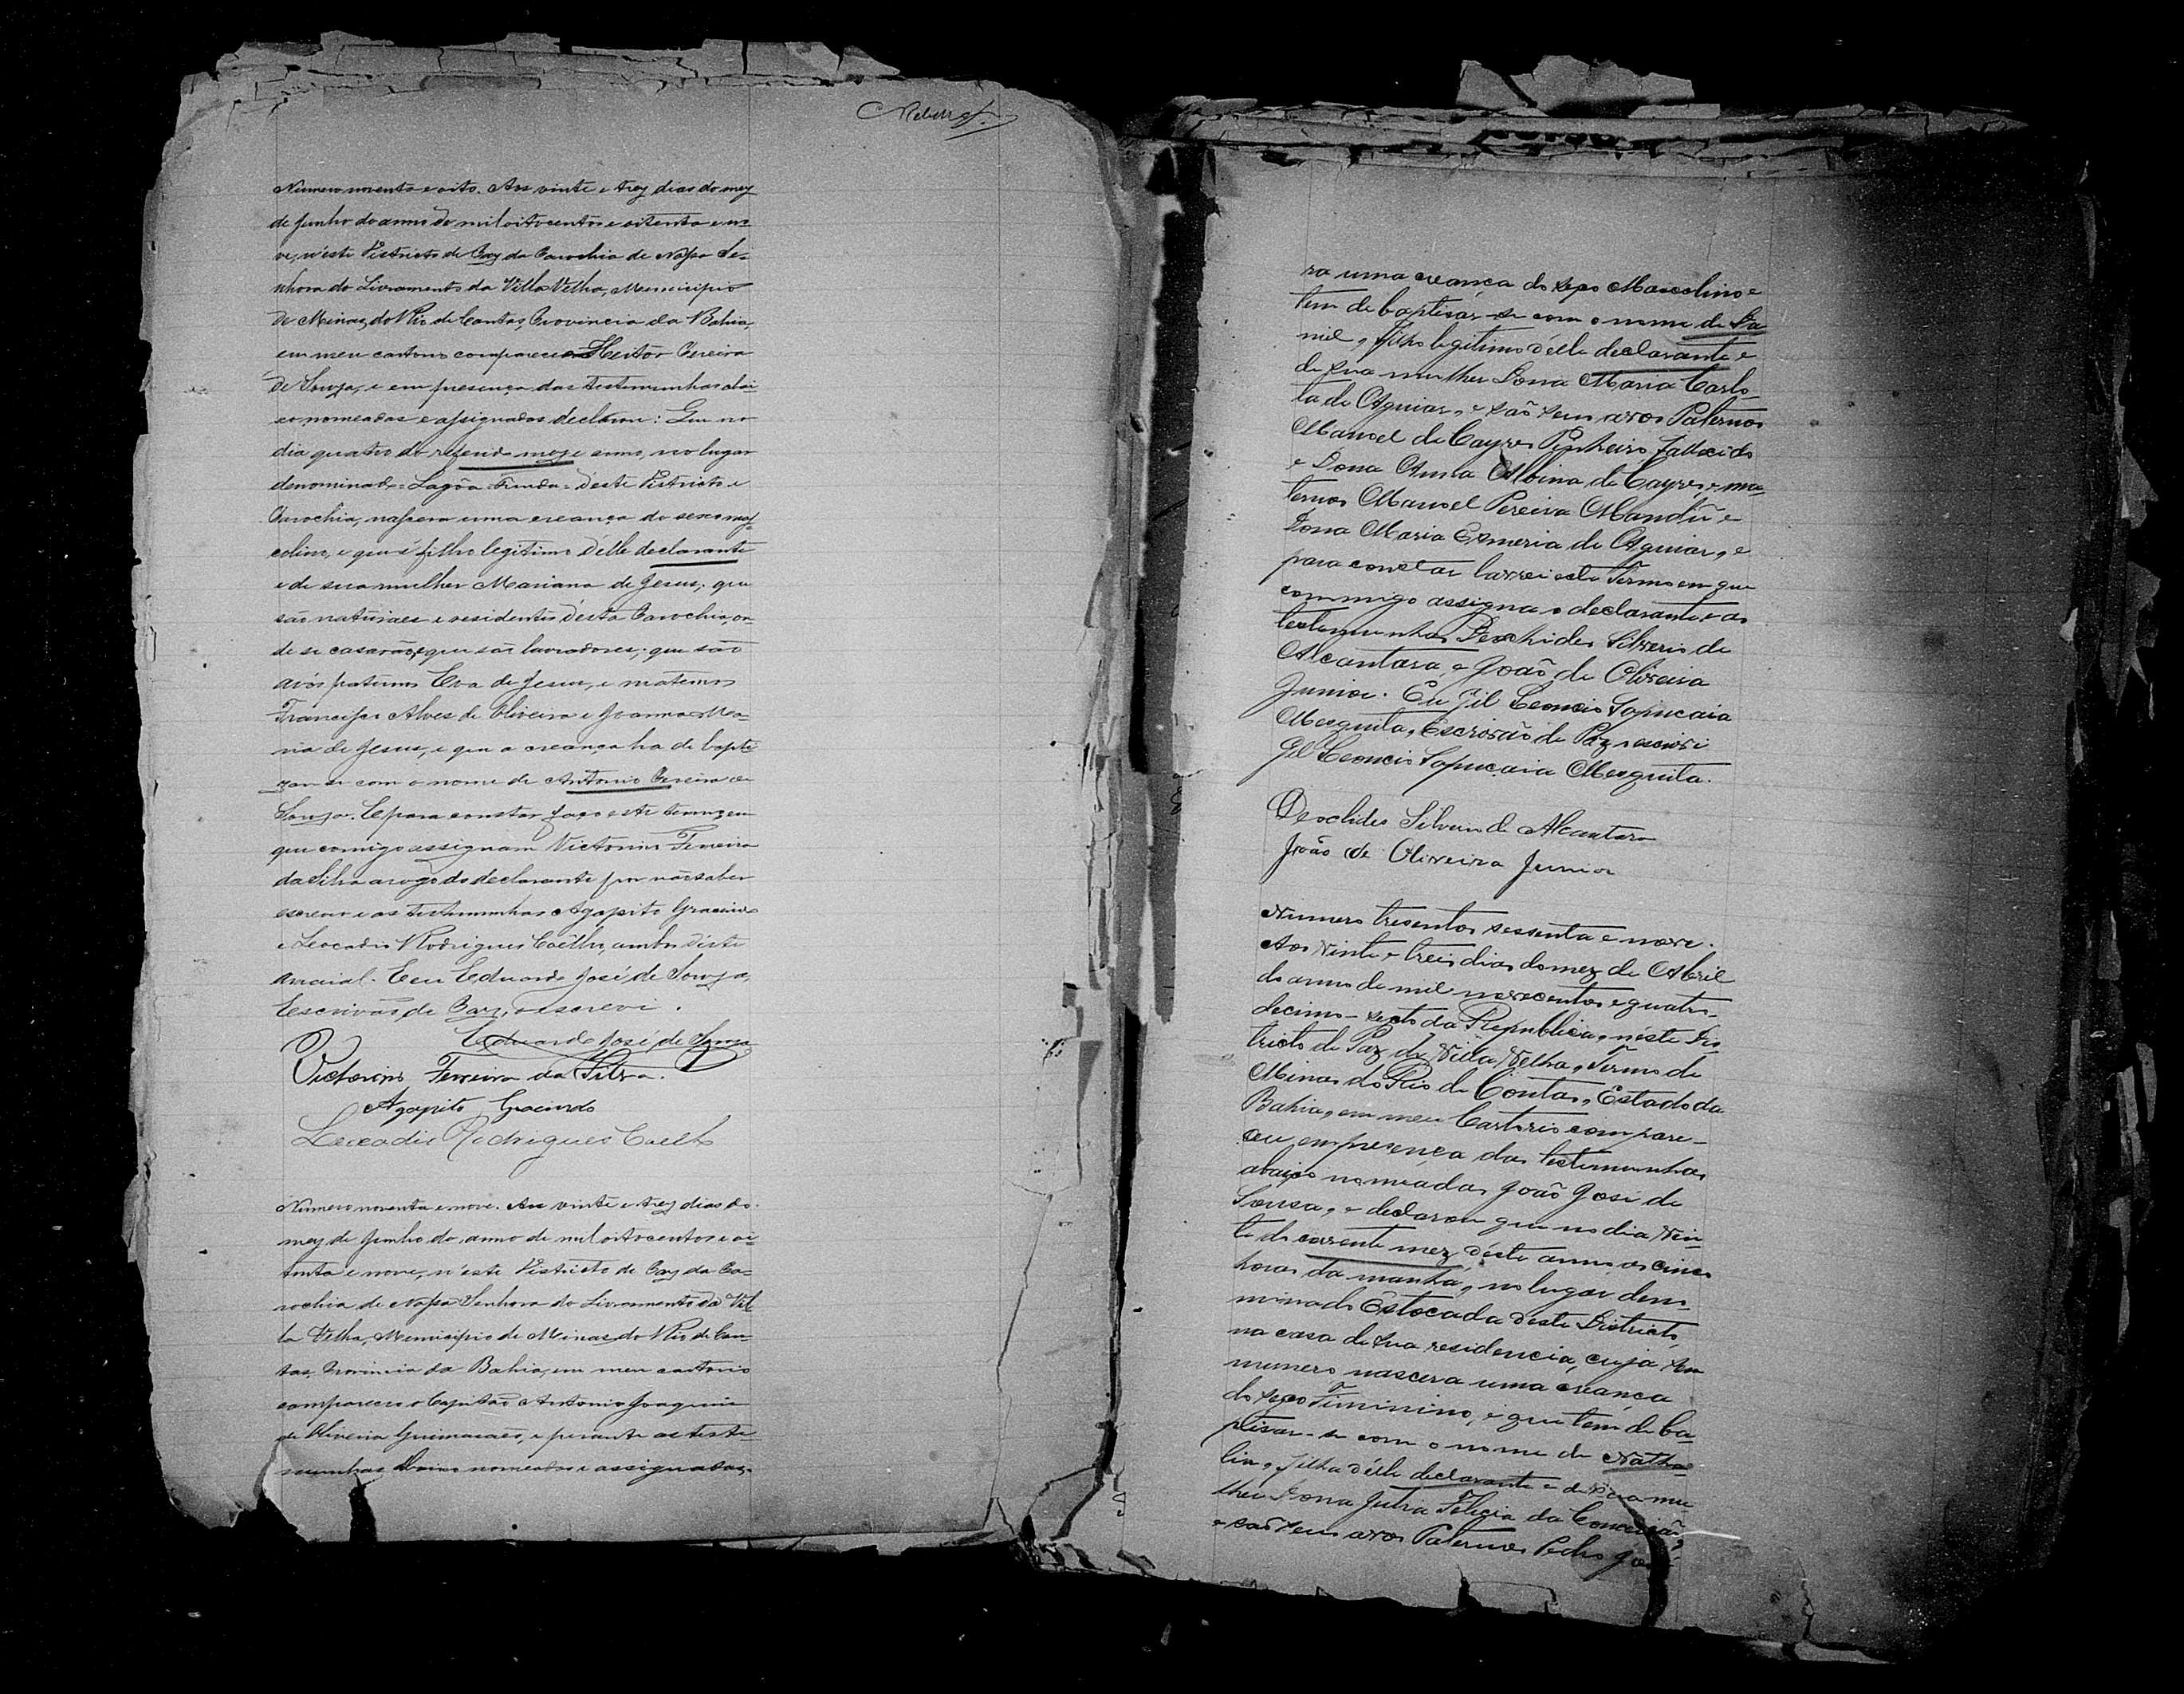 Numero noventa e oito. Aos vinte e trez dias do mez
de Junho do anno de mil oitocentos e oitenta e no-
ve, n'este Districto de Paz da Parochia de Nossa Se-
nhora do Livramento da Villa Velha, Municipio
de Minas do Rio de Contas, Provincia da Bahia,
em meu cartorio compareceo Heitor Pereira
de Souza, e em presença das testemunhas abai-
xo nomeadas e assignadas declarou: Que no
dia quatro do referido mez e anno, no lugar
denominado = Lagôa Funda = d'este Districto e
Parochia, nascera uma creança do sexo mas-
colino, e que é filho legitimo d'elle declarante
e de sua mulher Marianna de Jesus; que
são naturaes e residentes d'esta Parochia, on-
de se casarão, e que são lavradores; que são
avós paternos Eva de Jesus, e maternos
Francisco Alves de Oliveira e Joanna Ma-
ria de Jesus, e que a creança ha de bapti-
zar-se com o nome de Antonio Pereira de
Souza. E para constar faço este termo em
que comigo assignam Victorino Ferreira
da Silva a rogo do declarante por não saber
escrever e as testemunhas Agapito Gracindo
e Leocadio Rodrigues Coêlho, ambos d'este
arraial. E eu Eduardo José de Souza,
Escrivão de Paz, o escrevi.
Eduardo José de Souza
Victorino Ferreira da Silva.
Agapito Gracindo
Leocadio Rodrigues Coelho
Numero noventa e nove. Aos vinte e trez dias do
mez de Junho do anno de mil oitocentos e oi-
tenta e nove, n'este Districto de Paz da Pa-
rochia de Nossa Senhora do Livramento da Vil-
la Velha, Municipio de Minas do Rio de Con-
tas, Provincia da Bahia, em meu cartorio
compareceo o Capitão Antonio Joaquim
de Oliveira Guimarães, e perante as teste-
munhas abaixo nomeadas e assignadas,
ra uma creança do sexo Mascolino e
tem de baptisár-se com o nome de Da
niel, filho legitimo d'elle declarante e
de sua mulher Dona Maria Carlo
ta de Aguiar, e são seus avos Paternos
Manoel de Cayres Pinheiro fallecido
e Dona Anna Albina de Cayres e ma
ternos Manoel Pereira Mandú e
Dona Maria Esmeria de Aguiar, e
para constar lavrei este Termo em que
commigo assigna o declarante e as
testemunhas Deoclides Silverio de
Alcantara, e João de Oliveira
Junior. Eu Gil Leoncio Sapucaia
Mesquita, Escrivão de Paz o escrivi
Gil Leoncio Sapucaia Mesquita.
Deoclides Silverio de Alcantara
João de Oliveira Junior
Numero tresentos sessenta e nove.
Aos Vinte e treis dias do mez de Abril
do anno de mil novecentos e quatro,
decimo-sexto da Republica, n'este Dis
tricto de Paz de Villa Velha, Termo de
Minas do Rio de Contas, Estado da
Bahia, em meu Cartorio compare-
ceu em presença das testemunhas
abaixo nomeadas João José de
Sousa, e declarou que no dia Vin
te do corrente mez d'este anno as cinco
horas da manhã, no lugar deno-
minado Estocada deste Districto,
na casa de sua residencia, cuja sem
numero nascera uma creança
do sexo Feminino, e que tem de ba
ptisar-se com o nome de Natha
lia, filha d'elle declarante e de sua mu
lher Dona Julia Felicia da Conceição,
e são seus avos Paternos Pedro José